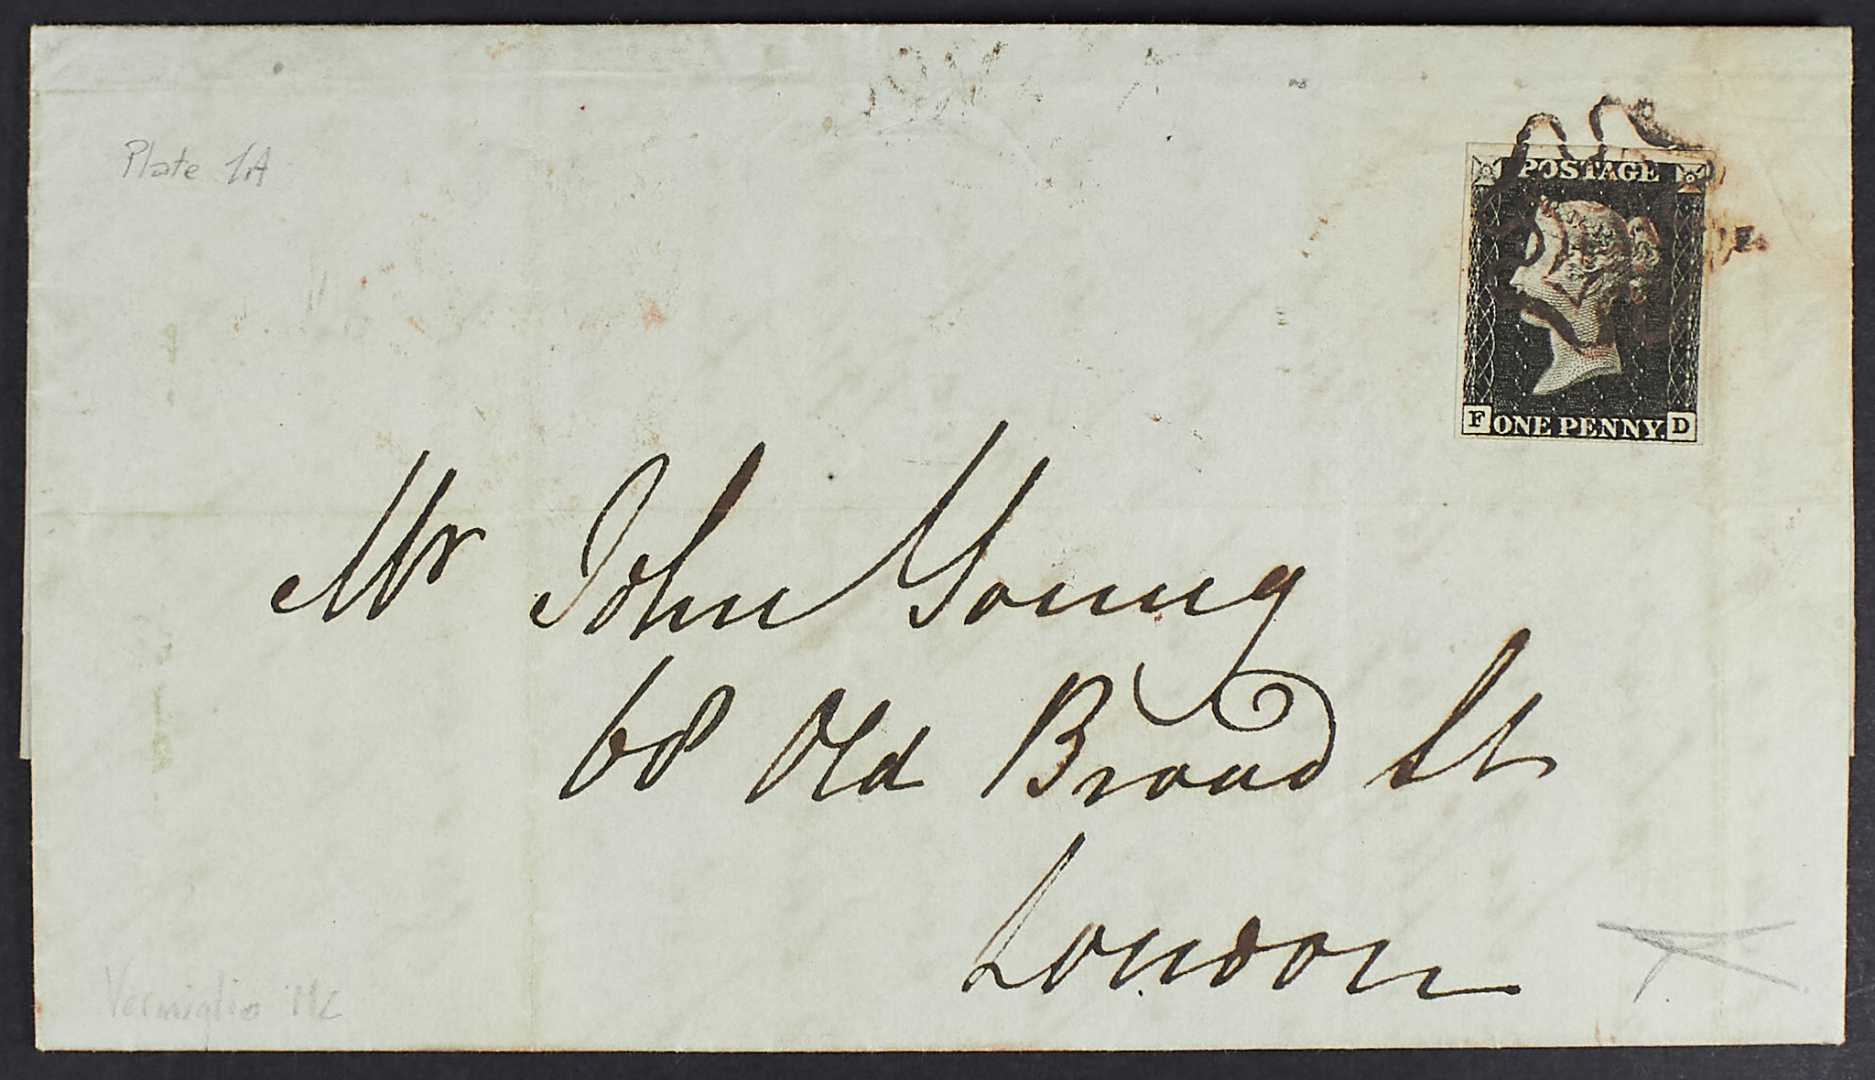 Plate 1A
POSTAGE
F ONE PENNY. D
Mr John Young
68 Old Broad St
London
Vermiglio